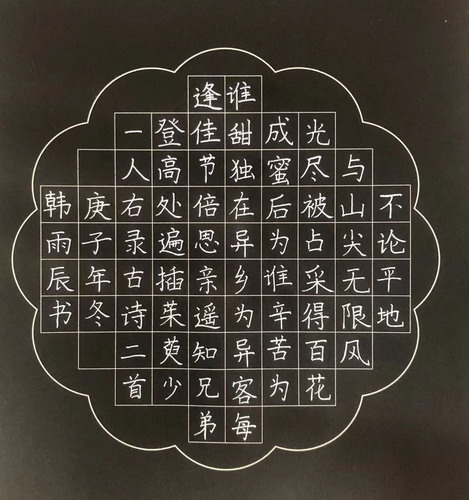 不论平地
与山尖无限风
光尽被占采得百花
成蜜后为谁辛苦为
谁甜独在异乡为异客每
逢佳节倍思亲遥知兄弟
登高处遍插茱萸少
一人右录古诗二首
庚子年冬
韩雨辰书